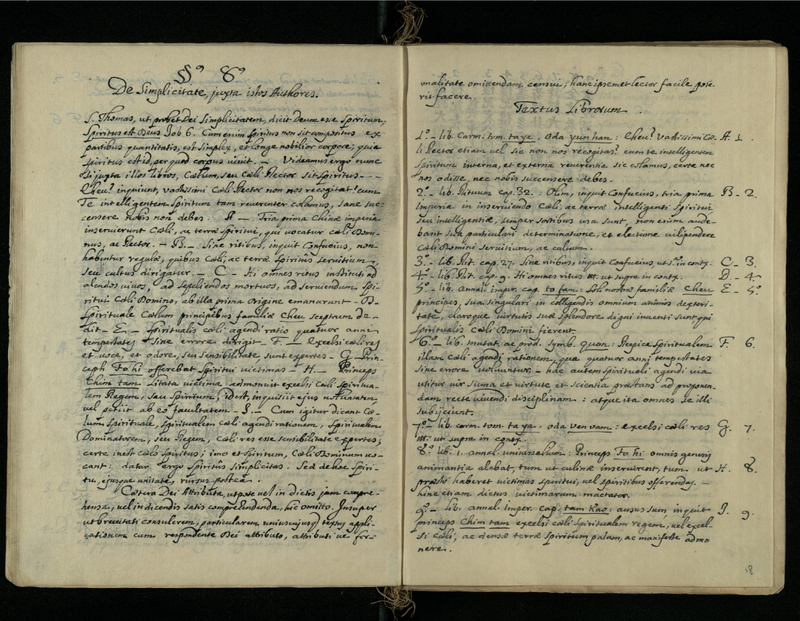 §º 8º
De Simplicitate, juxta istos Authores.
S. Thomas, ut probet Dei Simplicitatem, dicit Deum esse Spiritum,
Spiritus est Deus Job 6. Cum enim spiritus non sit compositus ex
partibus quantitatis, est simplex, et longe nobilior corpore; quia
spiritus est id, per quod corpus vivit. — Videamus ergo nunc
si juxta illos libros, Cœlum, seu Cœli Rector sit Spiritus. - -
Cheu! inquiunt, vastissimi Cœli Rector non nos recogitat! cum
Te intelligentem Spiritum tam reverenter colamus, sane suc-
censere nobis non debes. A — Tria prima Chinæ imperia
inservierunt Cœli, ac terræ spiritui, qui vocatur cœli Domi-
nus, ac Rector. — B. — Sine ritibus, inquit Confucius, non
habuntur regulæ, quibus Cœli, ac terræ Spiritus servitium,
seu cultus dirigatur. — C — Hi omnes ritus instituti ad
alendos vivos, ad sepeliendos mortuos, ad serviendum Spi-
ritui Cœli Domino, ab illa prima origine emanarunt — D
Spirituale Cœlum principibus familiæ Cheu sceptrum de-
dit — E — Spiritualis cœli agendi ratio quatuor anni
tempestates sine errore dirigit. F. — Excelsi cœli res
et voce, et odore, seu sensibilitate sunt expertes. G. Prin-
ceps Fo hi offerebat Spiritui victimas — H. — Princeps
Chim tam litata victima admonuit excelsi Cœli Spiritua-
lem Regem, seu Spiritum, idest, inquisivit ejus voluntatem
vel petiit ab eo facultatem. — I. — Cum igitur dicant Cœ-
lum Spirituale, Spiritualem Cœli agendi rationem, Spiritualem
Dominatorem, seu Regem, Cœli res esse sensibilitate expertes;
certe inest cœlo spiritus; imo et Spiritum, Cœli Dominum vo-
cant: datur ergo Spiritus simplicitas. Sed de hoc Spiri-
tu, ejusque unitate, rursus postea.
Cætera Dei Attributa, utpote vel in dictis jam compre-
hensa, vel in dicendis satis comprehendenda, hic omitto. Insuper
ut brevitati consulerem, particularem uniuscujusque textus appli-
cationem cum respondente Dei attributo, attributi ve for-
malitate omittendam censui; hanc ipsemet lector facile pote-
rit facere.
Textus Librorum.
1º — lib. Carm: tom. ta ye. Oda yun han: Cheu! Vastissimi Cœ- A 1.
li Rector etiam vel sic non nos recogitas! cum te intelligentem
Spiritum interna, et externa reverentia sic colamus, certe nec
nos odisse, nec nobis succensere debes.
2º — lib. Rituum cap. 32. : Olim, inquit Confucius, tria prima B — 2.
Imperia in inserviendo Cœli, ac terræ Intelligenti Spiritui
seu intelligentiæ, semper sortibus usa sunt, non enim aude-
bant sua particulari determinatione, et electione vilipendere
Cœli Domini servitium, ac cultum.
3º — lib. Rit. cap. 27. Sine ritibus, inquit Confucius, ut sup. in contx. C — 3.
4º — lib. Rit. cap. 9. Hi omnes ritus etc. ut supra in contx. D. — 4.
5º — lib. annal. imper. cap. to fam: Soli nostræ familiæ Cheu E — 5º
principes, sua singulari in colligendis omnium animis dexteri-
tate, claroque virtutis suæ splendore digni inventi sunt qui
Spiritualis Cœli Domini fierent.
6º — lib. mutat. ac prod. Symb. quon: Respice Spiritualem F 6.
illam Cœli agendi rationem, qua quatuor anni tempestates
sine errore volvuntur. — hac autem Spirituali agendi via
utitur vir summa et virtute et scientia præstans ad proponen-
dam recte vivendi disciplinam: atque ita omnes se illi
subjiciunt.
7º — lib. carm. tom. ta ye. oda ven vam: excelsi cœli res G. 7.
etc. ut supra in contx.
8º lib. 1. annal. universalium: Princeps Fo hi omnis generis
animantia alebat, tum ut culinæ inservirent, tum ut H. 8.
præsto haberet victimas spiritui, vel spiritibus offerendas. —
hinc etiam dictus victimarum mactator.
9º — lib. annal. Imper. cap. tam kao: ausus sum, inquit I. 9.
princeps Chim tam excelsi cœli Spiritualem regem, vel excel-
si Cœli, ac densæ terræ Spiritum palam, ac manifeste admo-
nere.
8